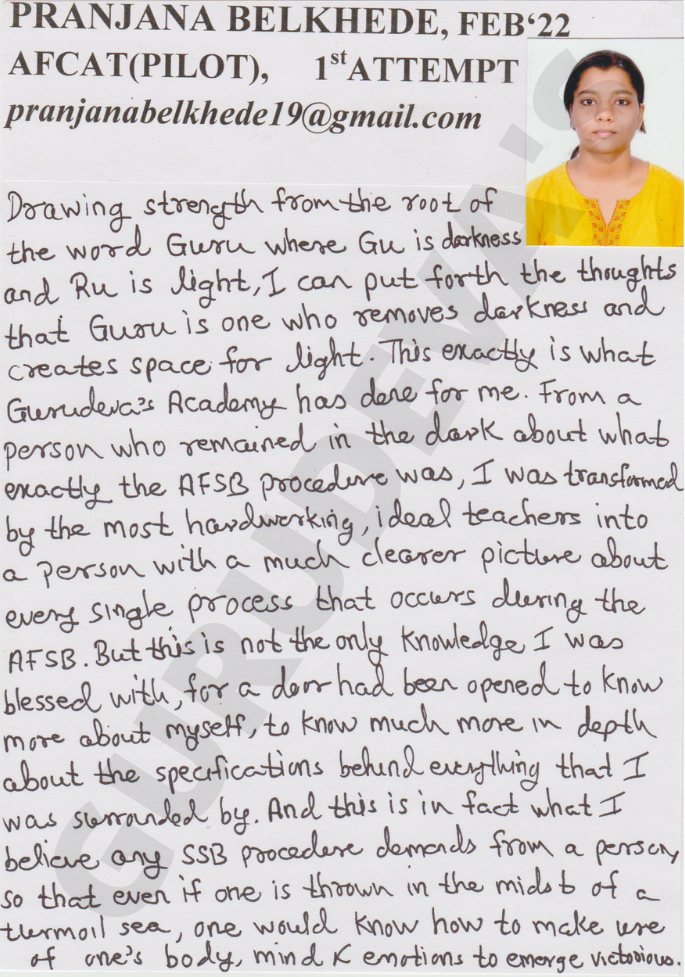 PRANJANA BELKHEDE, FEB‘22
AFCAT(PILOT), 1st ATTEMPT
pranjanabelkhede19@gmail.com
Drawing strength from the root of
the word Guru where Gu is darkness
and Ru is light, I can put forth the thoughts
that Guru is one who removes darkness and
creates space for light. This exactly is what
Gurudeva's Academy has done for me. From a
person who remained in the dark about what
exactly the AFSB procedure was, I was transformed
by the most hardworking, ideal teachers into
a person with a much clearer picture about
every single process that occurs during the
AFSB. But this is not the only knowledge I was
blessed with, for a door had been opened to know
more about myself, to know much more in depth
about the specifications behind everything that I
was surrounded by. And this is in fact what I
believe any SSB procedure demands from a person,
so that even if one is thrown in the midst of a
turmoil sea, one would know how to make use
of one's body, mind & emotions to emerge victorious.
GURUDEVA'S